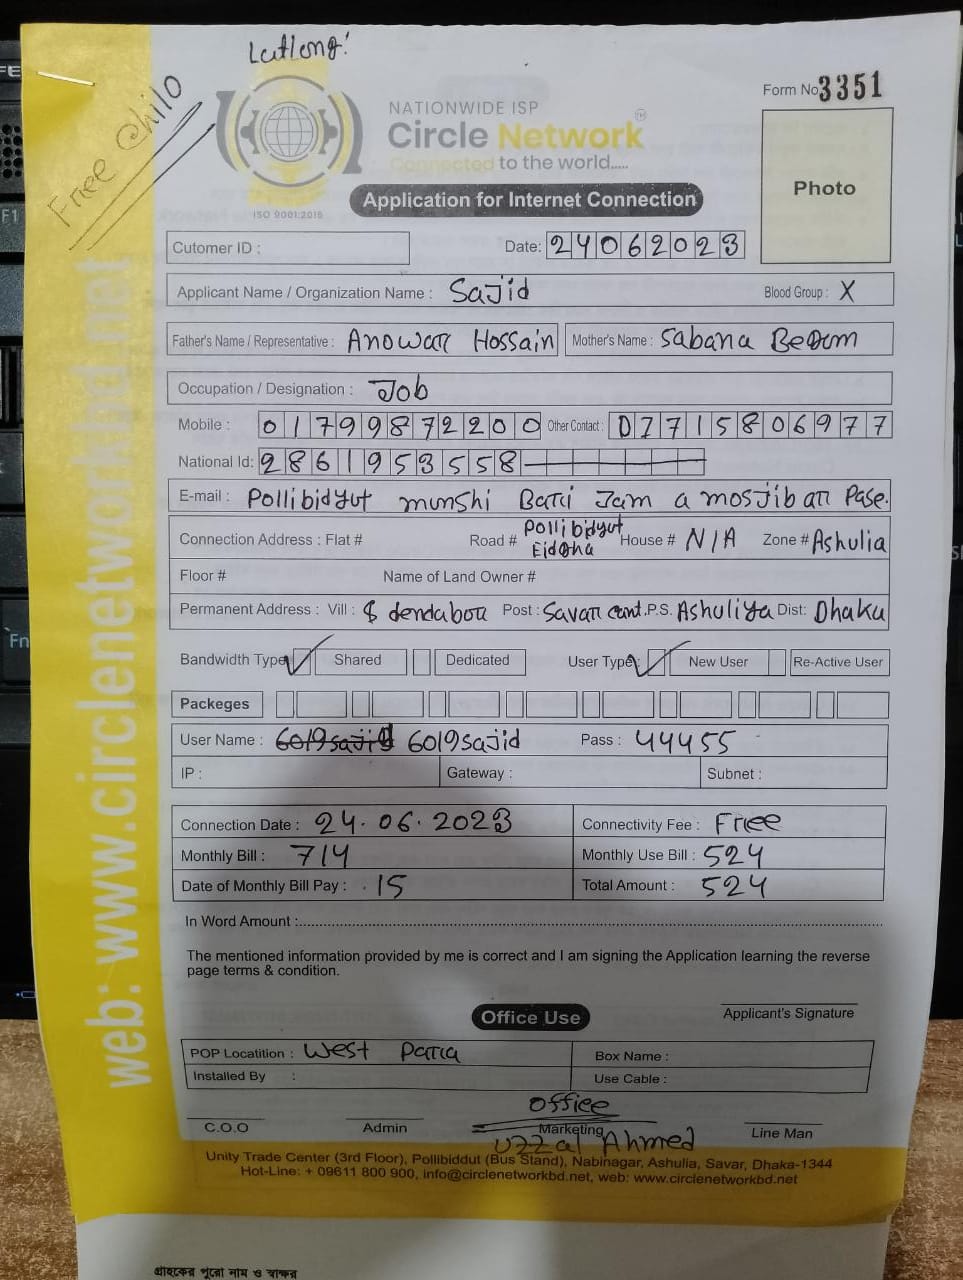 LatLong!
Free Chilo
Form No 3351
NATIONWIDE ISP
Circle Network
Connected to the world.....
ISO 9001:2015
Application for Internet Connection
Photo
Cutomer ID :
Date: 24062023
Applicant Name / Organization Name : Sajid
Blood Group : X
Father's Name / Representative : Anowar Hossain
Mother's Name : Sabana Begum
Occupation / Designation : Job
Mobile : 01799872200
Other Contact : 01715806977
National Id: 2861953558
E-mail : Pollibidyut munshi Bari Jam a mosjib ar Pase.
Connection Address : Flat # Road # Pollibidyut Eidgha House # N/A Zone # Ashulia
Floor # Name of Land Owner #
Permanent Address : Vill : dendabor Post : Savar cant. P.S. Ashuliya Dist: Dhaka
Bandwidth Type: ✓ Shared Dedicated User Type: ✓ New User Re-Active User
Packeges
User Name : 6019sajid 6019sajid Pass : 44455
IP : Gateway : Subnet :
Connection Date : 24.06.2023 Connectivity Fee : Free
Monthly Bill : 714 Monthly Use Bill : 524
Date of Monthly Bill Pay : 15 Total Amount : 524
In Word Amount :
The mentioned information provided by me is correct and I am signing the Application learning the reverse
page terms & condition.
Applicant's Signature
Office Use
POP Locatition : West Para Box Name :
Installed By : Use Cable :
Office
C.O.O Admin Marketing Line Man
Uzzal Ahmed
Unity Trade Center (3rd Floor), Pollibiddut (Bus Stand), Nabinagar, Ashulia, Savar, Dhaka-1344
Hot-Line: + 09611 800 900, info@circlenetworkbd.net, web: www.circlenetworkbd.net
web: www.circlenetworkbd.net
গ্রাহকের পুরো নাম ও স্বাক্ষর
F1
Fn